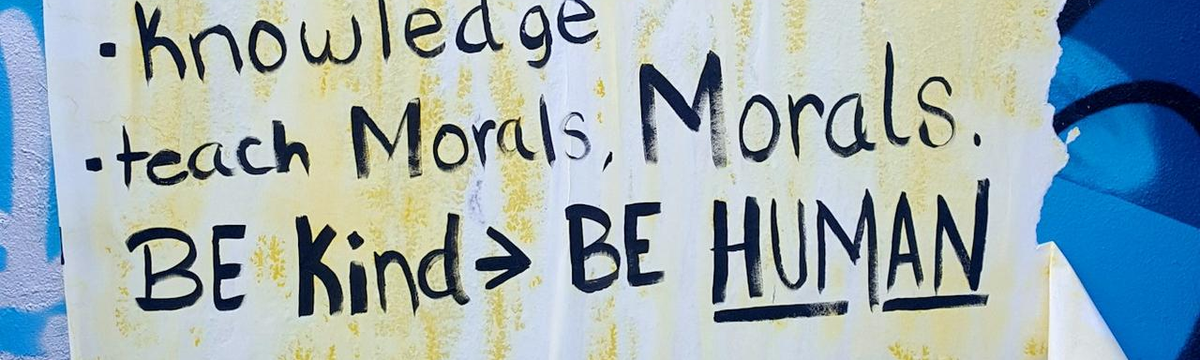 • Knowledge
• teach Morals, Morals.
BE Kind → BE HUMAN